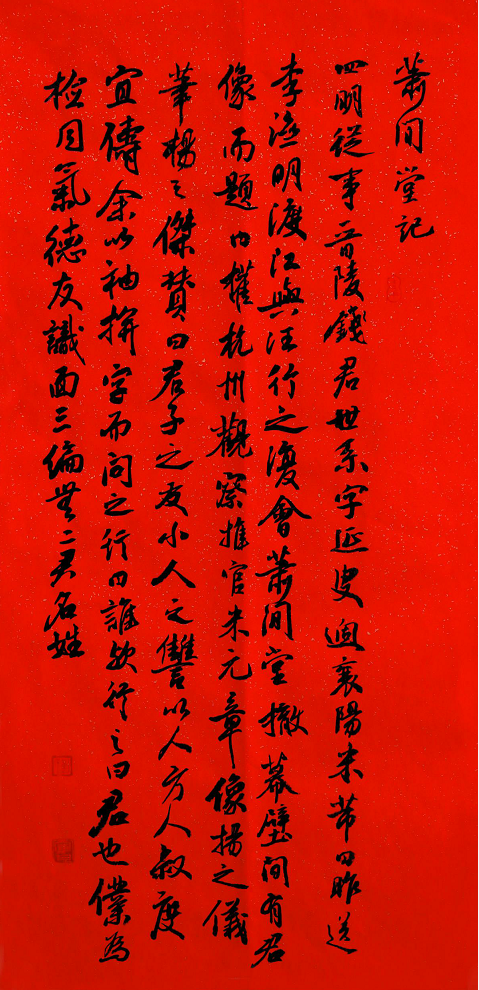 萧闲堂记
四明從事晋陵錢君世系字延叟過襄陽米芾曰昨送
李湛明渡江與汪行之復會萧闲堂撤幕壁间有君
像而題曰權杭州觀察推官米元章像揚之儀
華楊之傑贊曰君子之友小人之讐以人方人叔度
宜儔余以袖拚字而问之行曰誰欤行之曰君也僕為
檢目氣德友識面三编無二君名姓